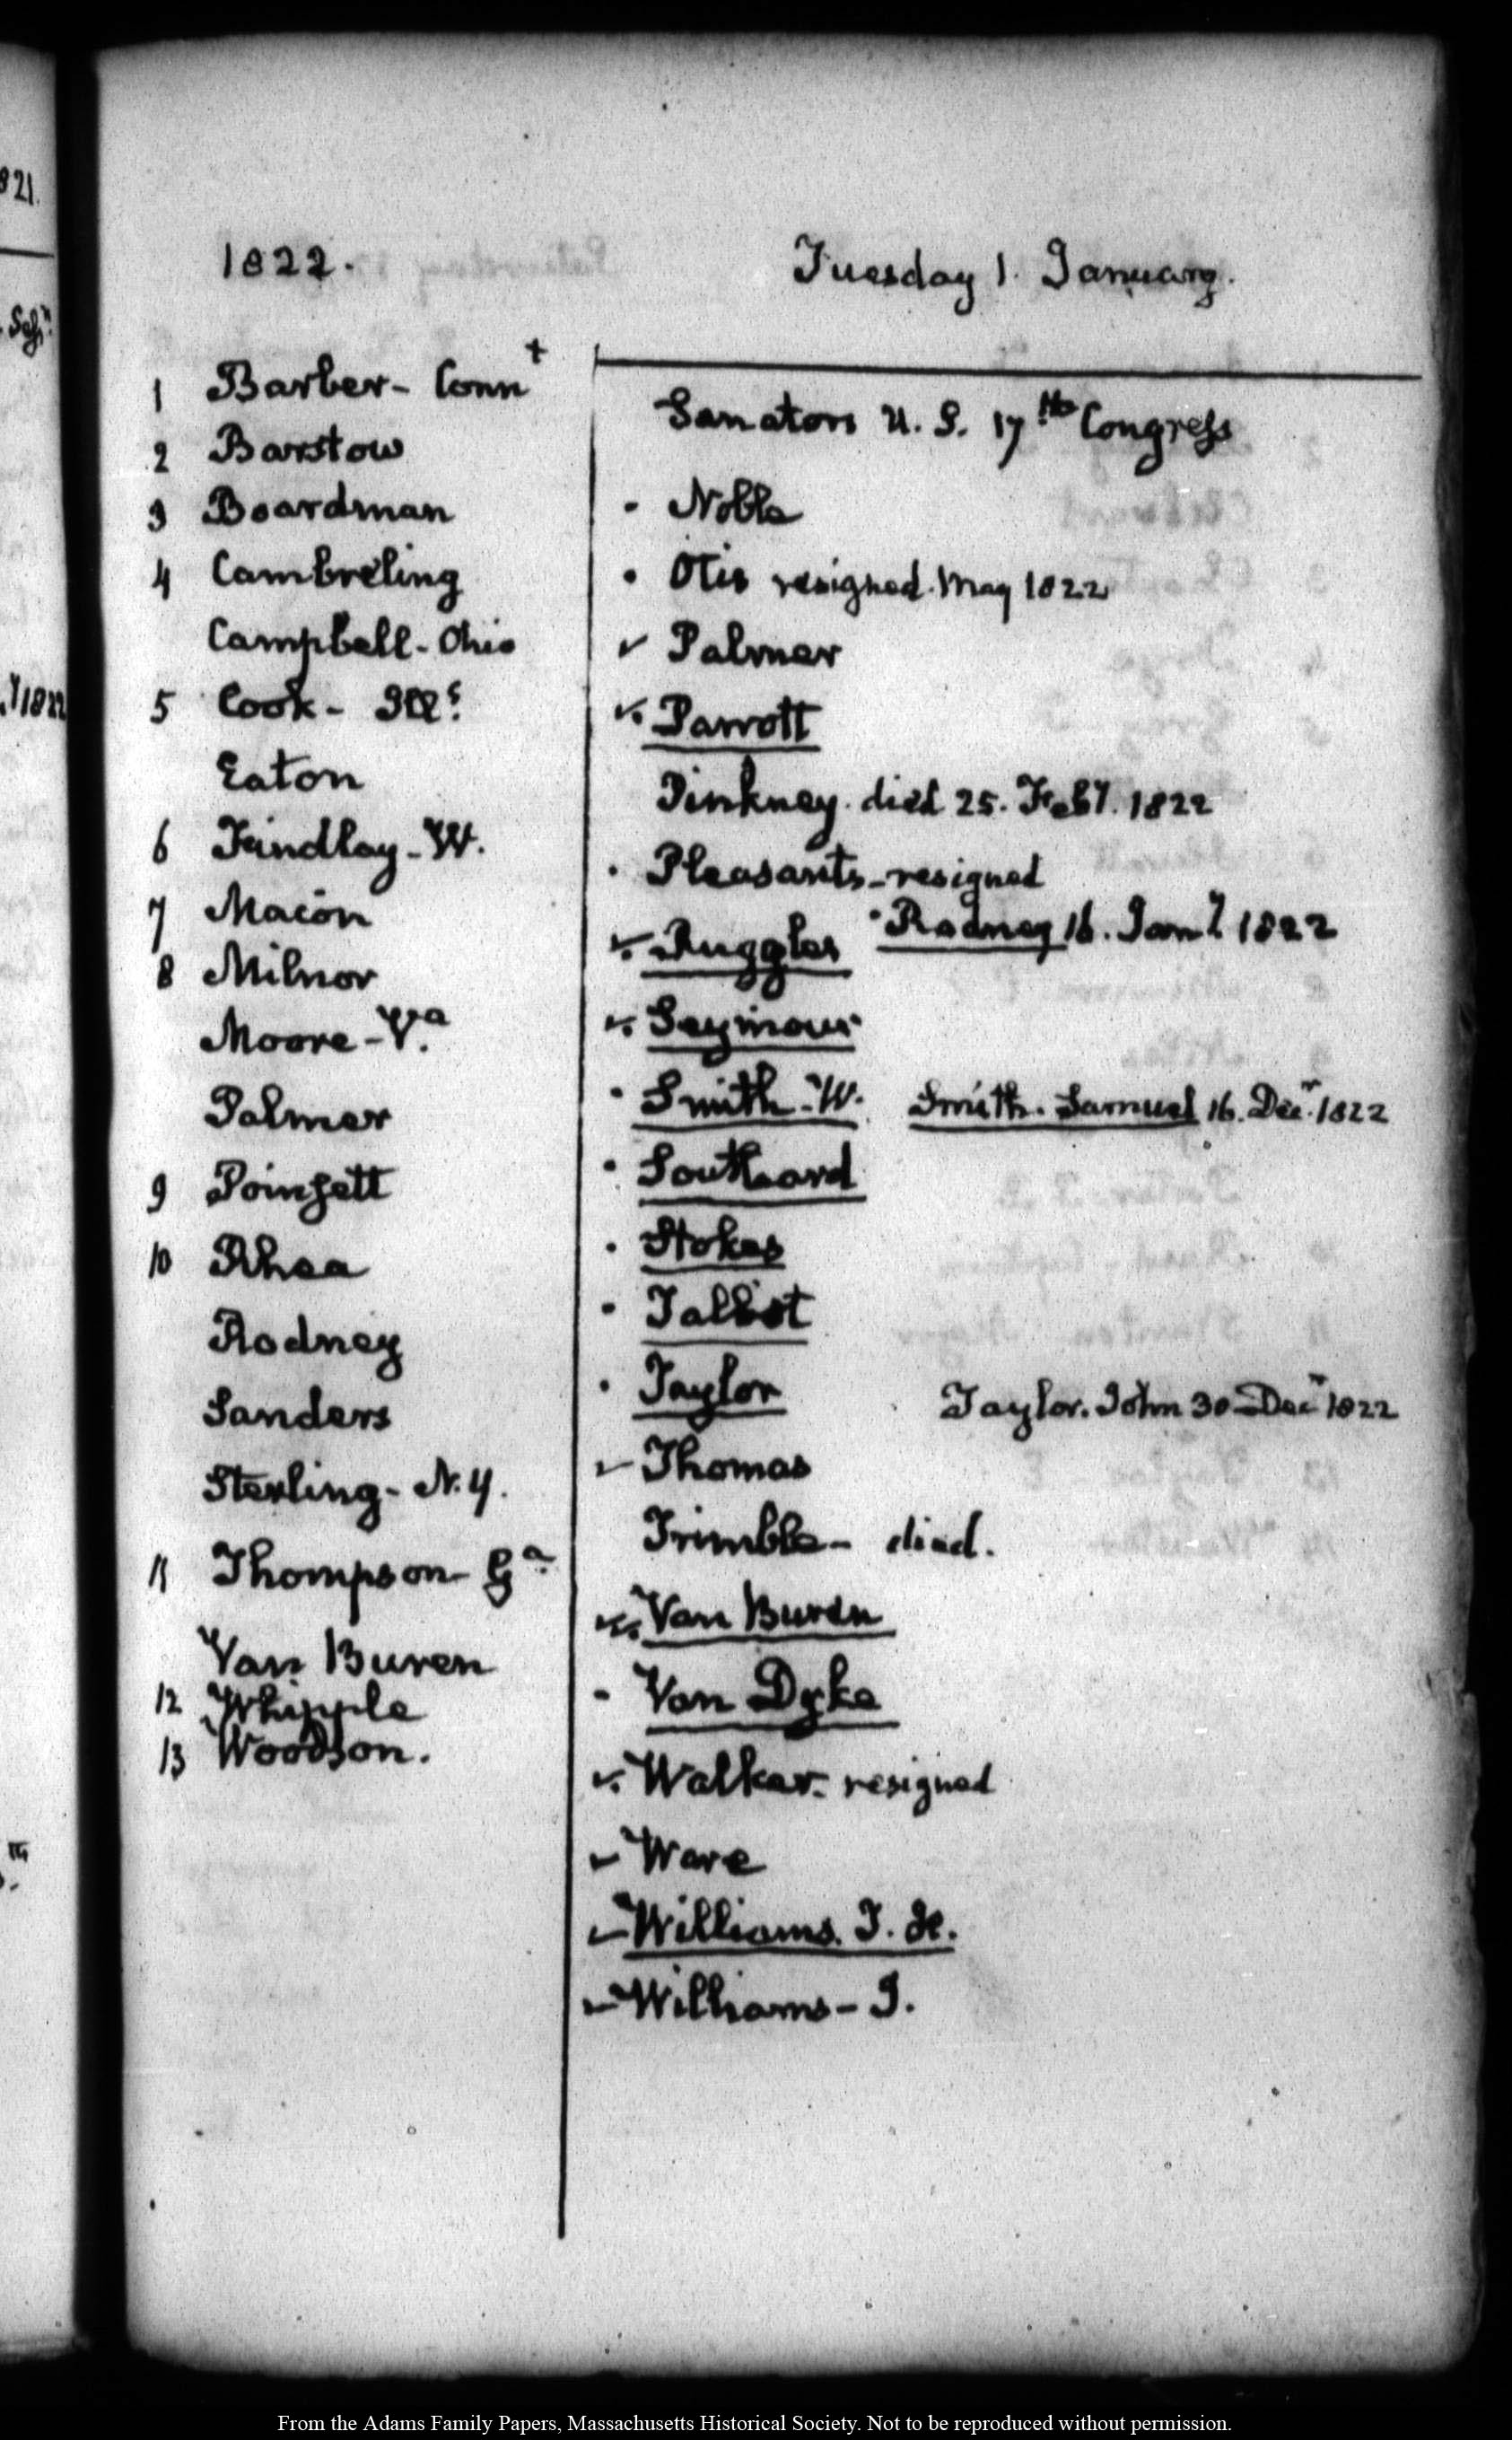 821.
1822. Tuesday 1. January.
1 Barber- Connt
2 Barstow
3 Boardman
4 Cambreling
Campbell- Ohio
5 Cook- Ills
Eaton
6 Findlay- W.
7 Macon
8 Milnor
Moore- Va.
Palmer
9 Poinsett
10 Rhea
Rodney
Sanders
Sterling- N.Y.
11 Thompson- Ga
Van Buren
12 Whipple
13 Woodson.
Senators U. S. 17th Congress
- Noble
• Otis resigned. May 1822
✓ Palmer
✓. Parrott
Pinkney. died 25. Feby. 1822
. Pleasants- resigned
✓. Ruggles • Rodney 16. Jany 1822
✓. Seymour
• Smith- W. Smith. Samuel 16. Decr. 1822
• Southard
. Stokes
- Talbot
. Taylor Taylor. John 30 Decr 1822
✓ Thomas
Trimble- died.
✓. Van Buren
- Van Dyke
✓. Walker- resigned
✓ Ware
✓ Williams. T. H.
✓ Williams- J.
From the Adams Family Papers, Massachusetts Historical Society. Not to be reproduced without permission.